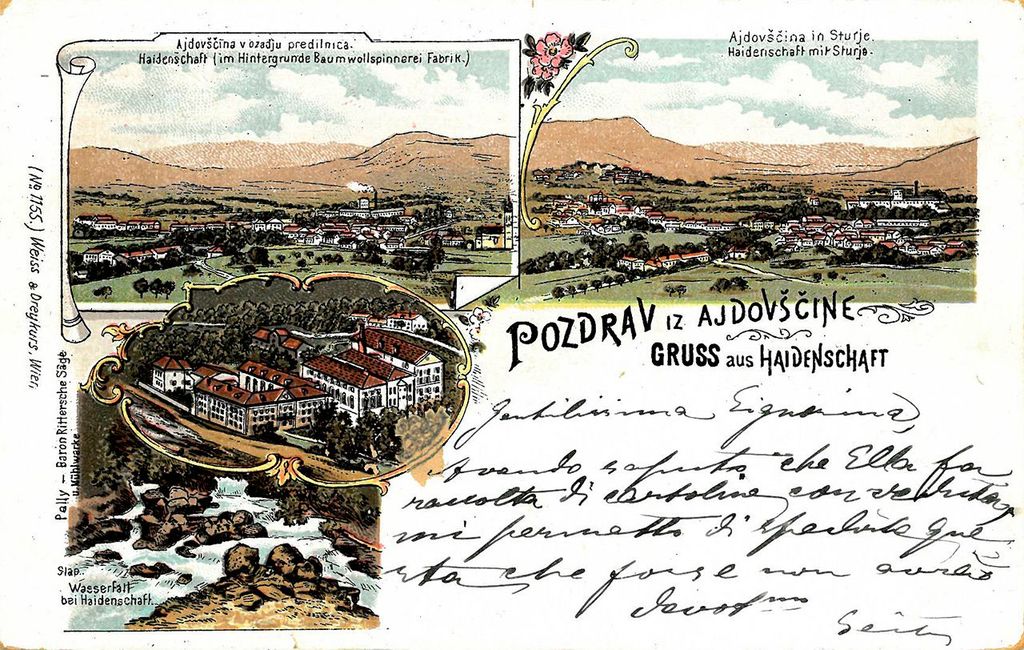 Ajdovščina v ozadju predilnica.
Haidenschaft (im Hintergrunde Baumwollspinnerei Fabrik.)
Ajdovščina in Sturje.
Haidenschaft mit Sturje.
(No 1155.) Weiss & Dreykurs, Wien
POZDRAV IZ AJDOVŠČINE
GRUSS aus HAIDENSCHAFT
Pally — Baron Rittersche Säge
u. Mühlwerke
Slap.
Wasserfall
bei Haidenschaft.
Gentilissima Signorina,
Avendo saputo che Ella fa
raccolta di cartoline con vedute,
mi permetto di spedirle que
sta che forse non avrà
devotmo